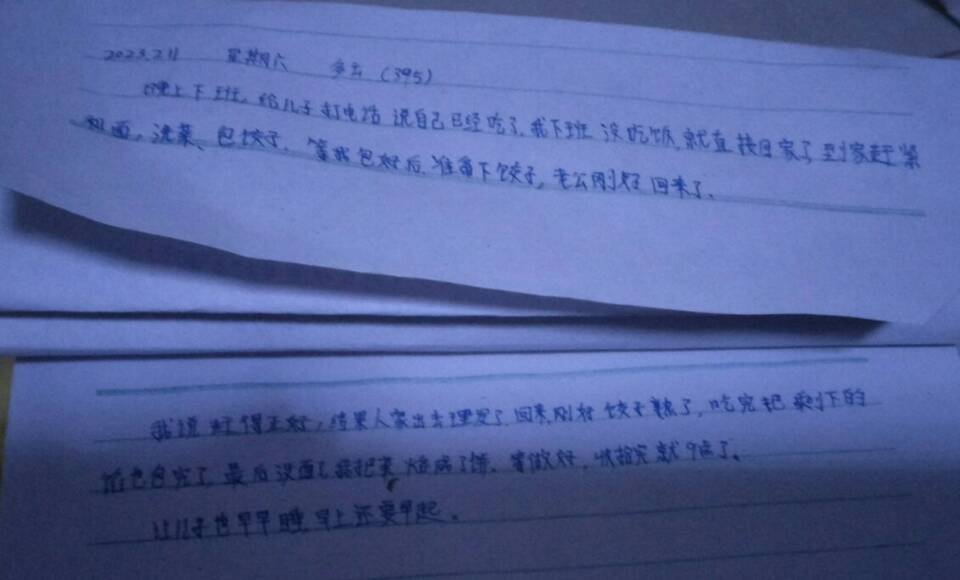 2023.2.11 星期六 多云（395）
晚上下班，给儿子打电话说自己已经吃了，我下班没吃饭，就直接回家了，到家赶紧
和面，洗菜、包饺子，等我包好后，准备下饺子，老公刚好回来了、
我说好得正好，结果人家出去理发了，回来刚好饺子熟了，吃完把剩下的
馅也包完了，最后没面了，我把 烙成了饼、等做好，收拾完就9点了。
让儿子也早早睡，早上还要早起。